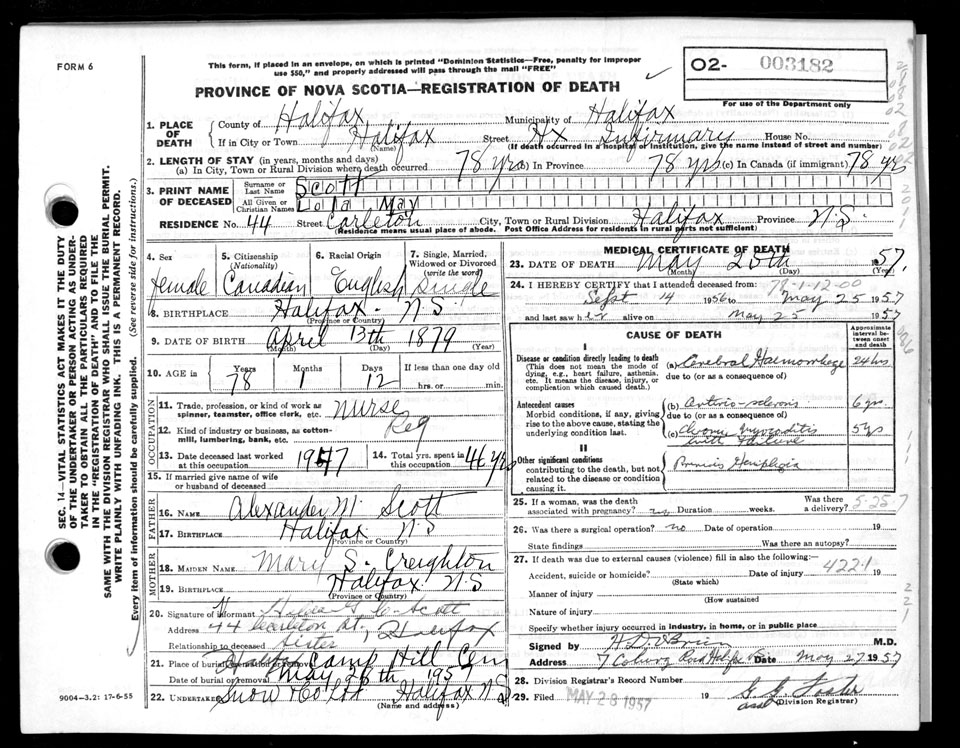 FORM 6
This form, if placed in an envelope, on which is printed "Dominion Statistics—Free, penalty for improper
use $50," and properly addressed will pass through the mail "FREE"
O2- 003182
For use of the Department only
PROVINCE OF NOVA SCOTIA—REGISTRATION OF DEATH
1. PLACE OF DEATH County of Halifax Municipality of Halifax
If in City or Town Halifax Street Hx Infirmary House No.
(Name) (If death occurred in a hospital or institution, give the name instead of street and number)
2. LENGTH OF STAY (in years, months and days)
(a) In City, Town or Rural Division where death occurred 78 yrs (b) in Province 78 yrs (c) in Canada (if immigrant) 78 yrs
3. PRINT NAME OF DECEASED Surname or Last Name Scott
All Given or Christian Names Lola May
RESIDENCE No. 44 Street Carleton City, Town or Rural Division Halifax Province N.S.
(Residence means usual place of abode. Post Office Address for residents in rural parts not sufficient)
4. Sex 5. Citizenship (Nationality) 6. Racial Origin 7. Single, Married, Widowed or Divorced (write the word)
Female Canadian English Single
8. BIRTHPLACE Halifax N.S.
(Province or Country)
9. DATE OF BIRTH April 13th 1879
(Month) (Day) (Year)
10. AGE in Years Months Days If less than one day old
78 1 12 hrs. or min.
OCCUPATION
11. Trade, profession, or kind of work as spinner, teamster, office clerk, etc. Nurse
12. Kind of industry or business, as cotton-mill, lumbering, bank, etc. Reg
13. Date deceased last worked at this occupation 1947 14. Total yrs. spent in this occupation 46 yrs
15. If married give name of wife or husband of deceased
FATHER
16. NAME Alexander M. Scott
17. BIRTHPLACE Halifax N.S
(Province or Country)
MOTHER
18. MAIDEN NAME Mary S. Creighton
19. BIRTHPLACE Halifax N.S
(Province or Country)
20. Signature of informant Scott
Address 44 Carleton St., Halifax
Relationship to deceased Sister
21. Place of burial, cremation or removal Camp Hill Cem
Date of burial or removal May 1957
22. Undertaker Snow & Co Ltd Halifax N.S
(Name and address)
9004-3.2: 17-6-55
SEC. 14—VITAL STATISTICS ACT MAKES IT THE DUTY
OF THE UNDERTAKER OR PERSON ACTING AS UNDER-
TAKER TO OBTAIN ALL THE PARTICULARS REQUIRED
IN THE "REGISTRATION OF DEATH" AND TO FILE THE
SAME WITH THE DIVISION REGISTRAR WHO SHALL ISSUE THE BURIAL PERMIT.
WRITE PLAINLY WITH UNFADING INK. THIS IS A PERMANENT RECORD.
Every item of information should be carefully supplied. (See reverse side for instructions.)
MEDICAL CERTIFICATE OF DEATH
23. DATE OF DEATH May 25th 1957
(Month) (Day) (Year)
24. I HEREBY CERTIFY that I attended deceased from: 78-1-12-00
Sept 14 1956 to May 25 1957
and last saw her alive on May 25 1957
CAUSE OF DEATH
Approximate interval between onset and death
I
Disease or condition directly leading to death
(This does not mean the mode of dying, e.g., heart failure, asthenia, etc. It means the disease, injury, or complication which caused death.)
(a) Cerebral Haemorrhage 24 hrs
due to (or as a consequence of)
Antecedent causes
Morbid conditions, if any, giving rise to the above cause, stating the underlying condition last.
(b) Arterio-sclerosis 6 yrs
due to (or as a consequence of)
(c) Chronic Myocarditis with Failure 5 yrs
II
Other significant conditions
contributing to the death, but not related to the disease or condition causing it.
25. If a woman, was the death associated with pregnancy? no Duration weeks. Was there a delivery? 5-25-7
26. Was there a surgical operation? no Date of operation 19
State findings Was there an autopsy?
27. If death was due to external causes (violence) fill in also the following:—
Accident, suicide or homicide? Date of injury 19
422.1
(State which)
Manner of injury
(How sustained
Nature of injury
Specify whether injury occurred in industry, in home, or in public place
Signed by H D O'Brien M.D.
Address 7 Coburg Road Halifax Date May 27 1957
28. Division Registrar's Record Number
29. Filed MAY 28 1957 19 Foster
(Division Registrar)